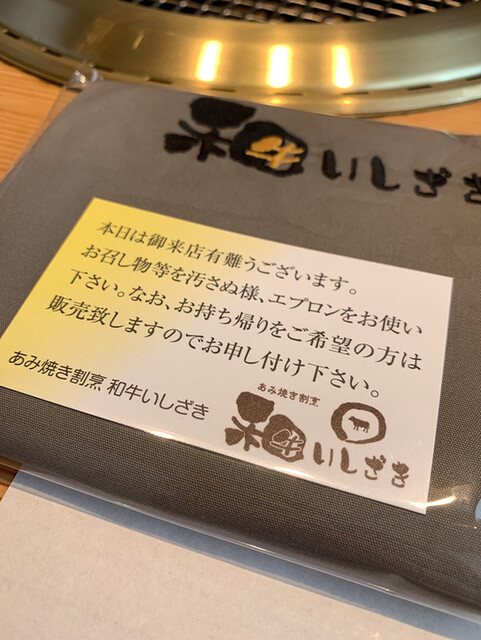 和牛いしざき
本日は御来店有難うございます。
お召し物等を汚さぬ様、エプロンをお使い
下さい。なお、お持ち帰りをご希望の方は
販売致しますのでお申し付け下さい。
あみ焼き割烹 和牛いしざき
あみ焼き割烹
和牛いしざき